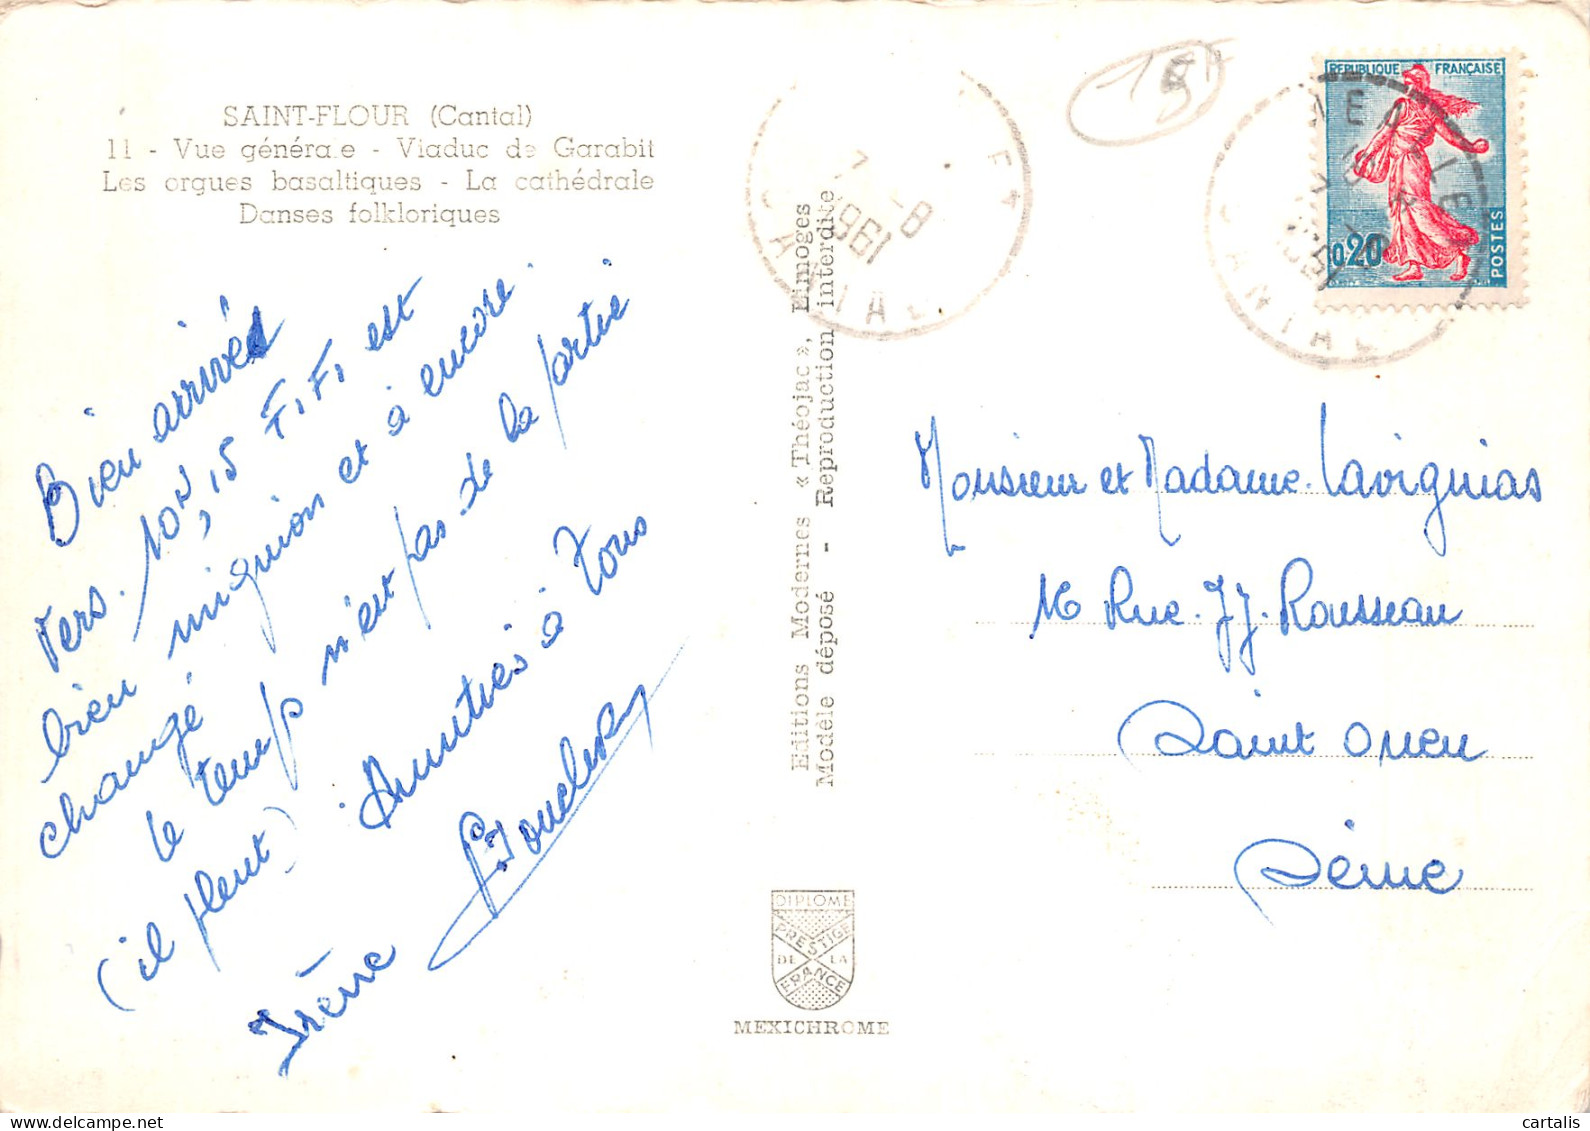 SAINT-FLOUR (Cantal)
11 - Vue générale - Viaduc de Garabit
Les orgues basaltiques - La cathédrale
Danses folkloriques
Bien arrivés
vers 10h,15 FiFi est
bien mignion et à encore
changé
le temps n'est pas de la partie
(il pleut) Amitiés à tous
Irène
Editions Modernes « Théojac », Limoges
Modèle déposé - Reproduction interdite
DIPLOME
PRESTIGE
DE LA
FRANCE
MEXICHROME
15F
7 -8
1961
REPUBLIQUE FRANÇAISE
0,20
POSTES
Monsieur et Madame Lavignias
16 Rue JJ. Rousseau
Saint Ouen
Seine
cartalis